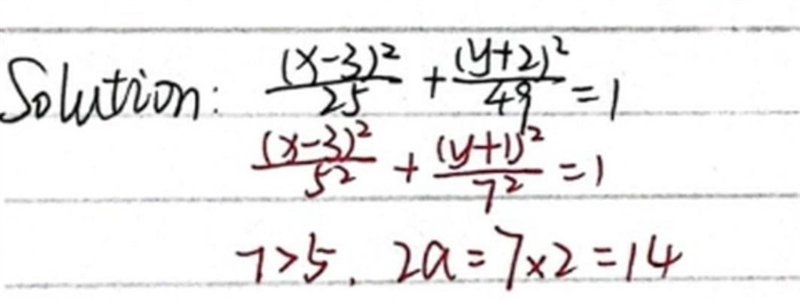 Solution: (x-3)²/25 + (y+2)²/49 = 1
(x-3)²/5² + (y+1)²/7² = 1
7>5. 2a=7×2=14